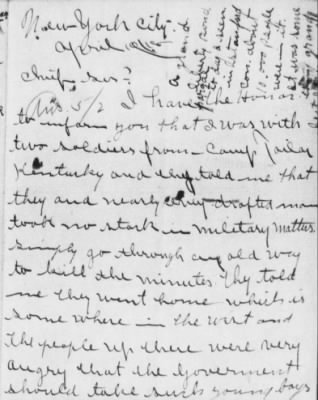 New York City.
April
Chief sir?
Ans. 5/2 I have the Honor
to inform you that I was with
two soldiers from Camp
Kentucky and they told me that
they and nearly every drafted man
took no stock in military matters.
Simply go through any old way
to kill the minutes. They told
me they went home which is
some where in the west and
the people up there were very
angry that the Government
should take such young boys
A grand
Liberty
in the
Con. about
10.000 people
were in it.
it was some